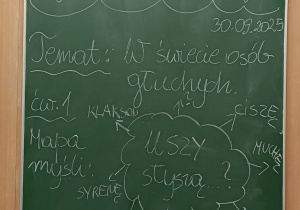 30.09.2025
Temat: W świecie osób
głuchych.
ćw. 1
KLAKSON
CISZĘ
Mapa
myśli:
USZY
słyszą...?
MUCHĘ
SYRENĘ